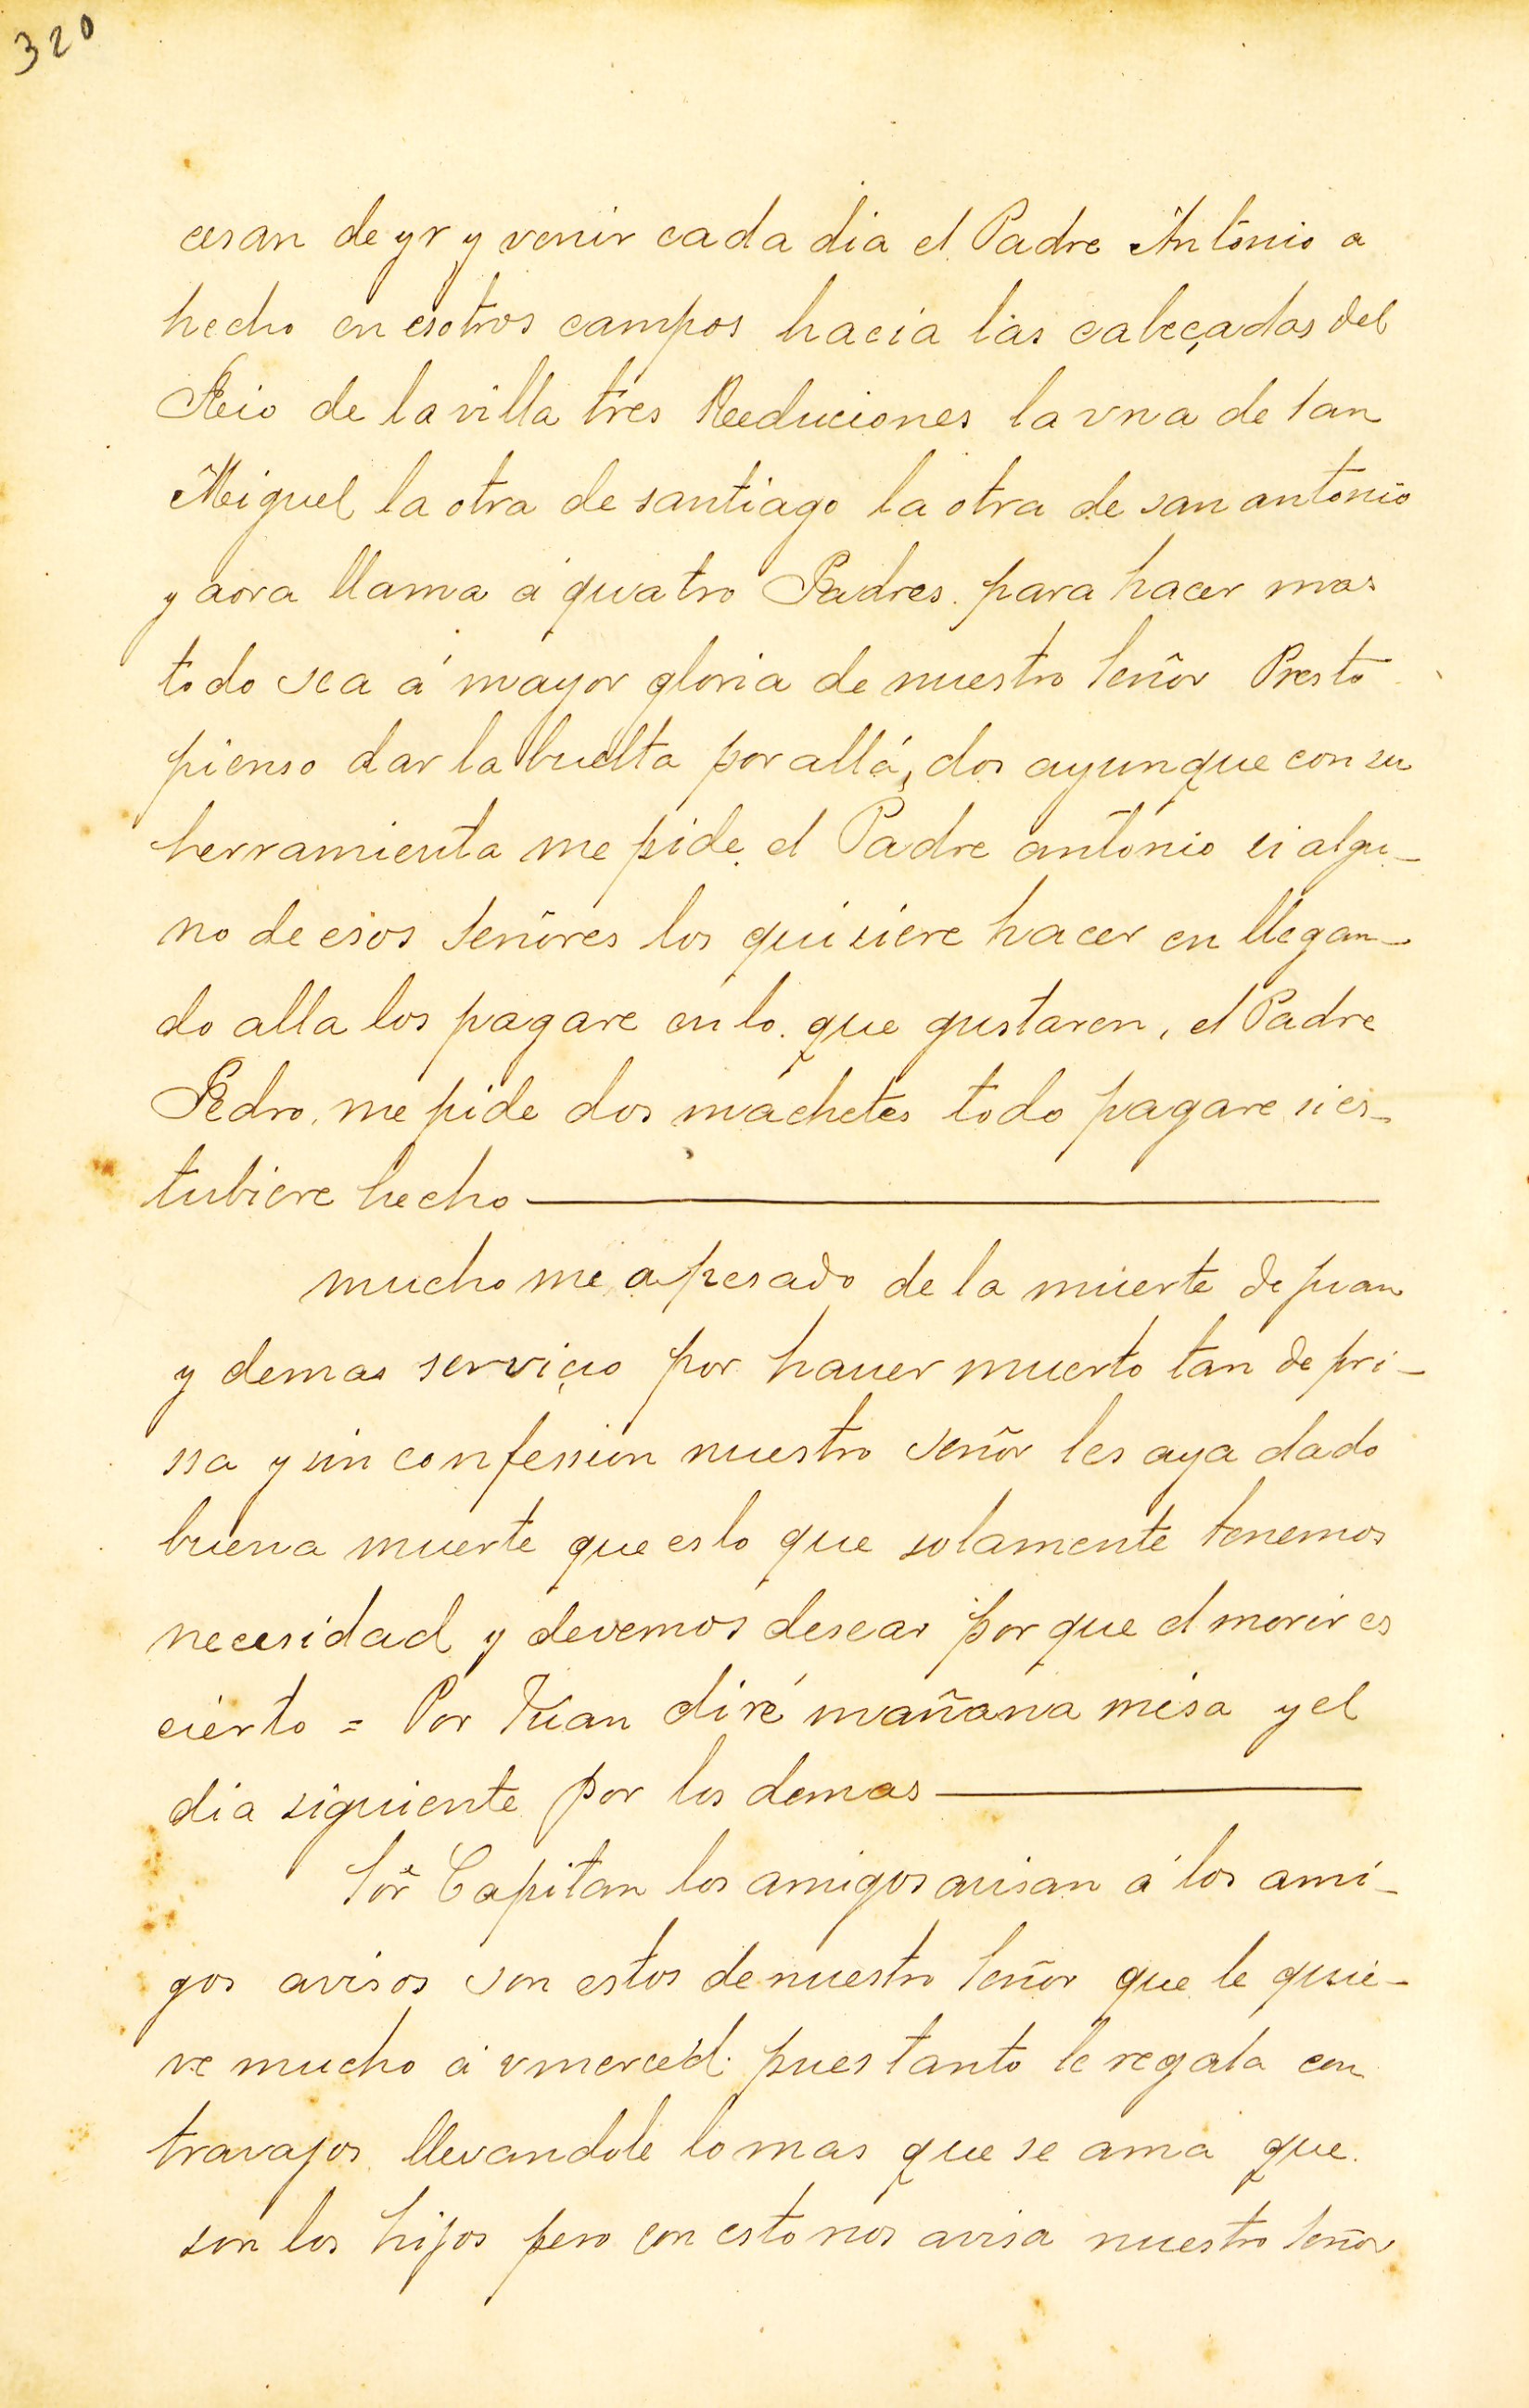 320
cesan de yr y venir cada dia el Padre Antonio a
hecho en esotros campos hacia las cabeçadas del
Rio de la villa tres Reduciones la vna de san
Miguel la otra de santiago la otra de san antonio
y aora llama a quatro Padres para hacer mas
todo sea á mayor gloria de nuestro señor Presto
pienso dar la buelta por allá, dos ayunque con su
herramienta me pide el Padre antonio si algu-
no de esos señores los quisiere hacer en llegan-
do alla los pagare en lo que gustaren, el Padre
Pedro, me pide dos machetes todo pagare si es-
tubiere hecho
mucho me a pesado de la muerte de juan
y demas serviçio por hauer muerto tan de pri-
ssa y sin confession nuestro señor les aya dado
buena muerte que es lo que solamente tenemos
necesidad y devemos desear por que el morir es
cierto = Por Juan diré mañana misa y el
dia siguiente por los demas
Sor̃ Capitan los amigos auisan á los ami-
gos avisos son estos de nuestro señor que le quie-
re mucho a vmerced. pues tanto le regala con
travajos llevandole lo mas que se ama que
son los hijos pero con esto nos avisa nuestro señor